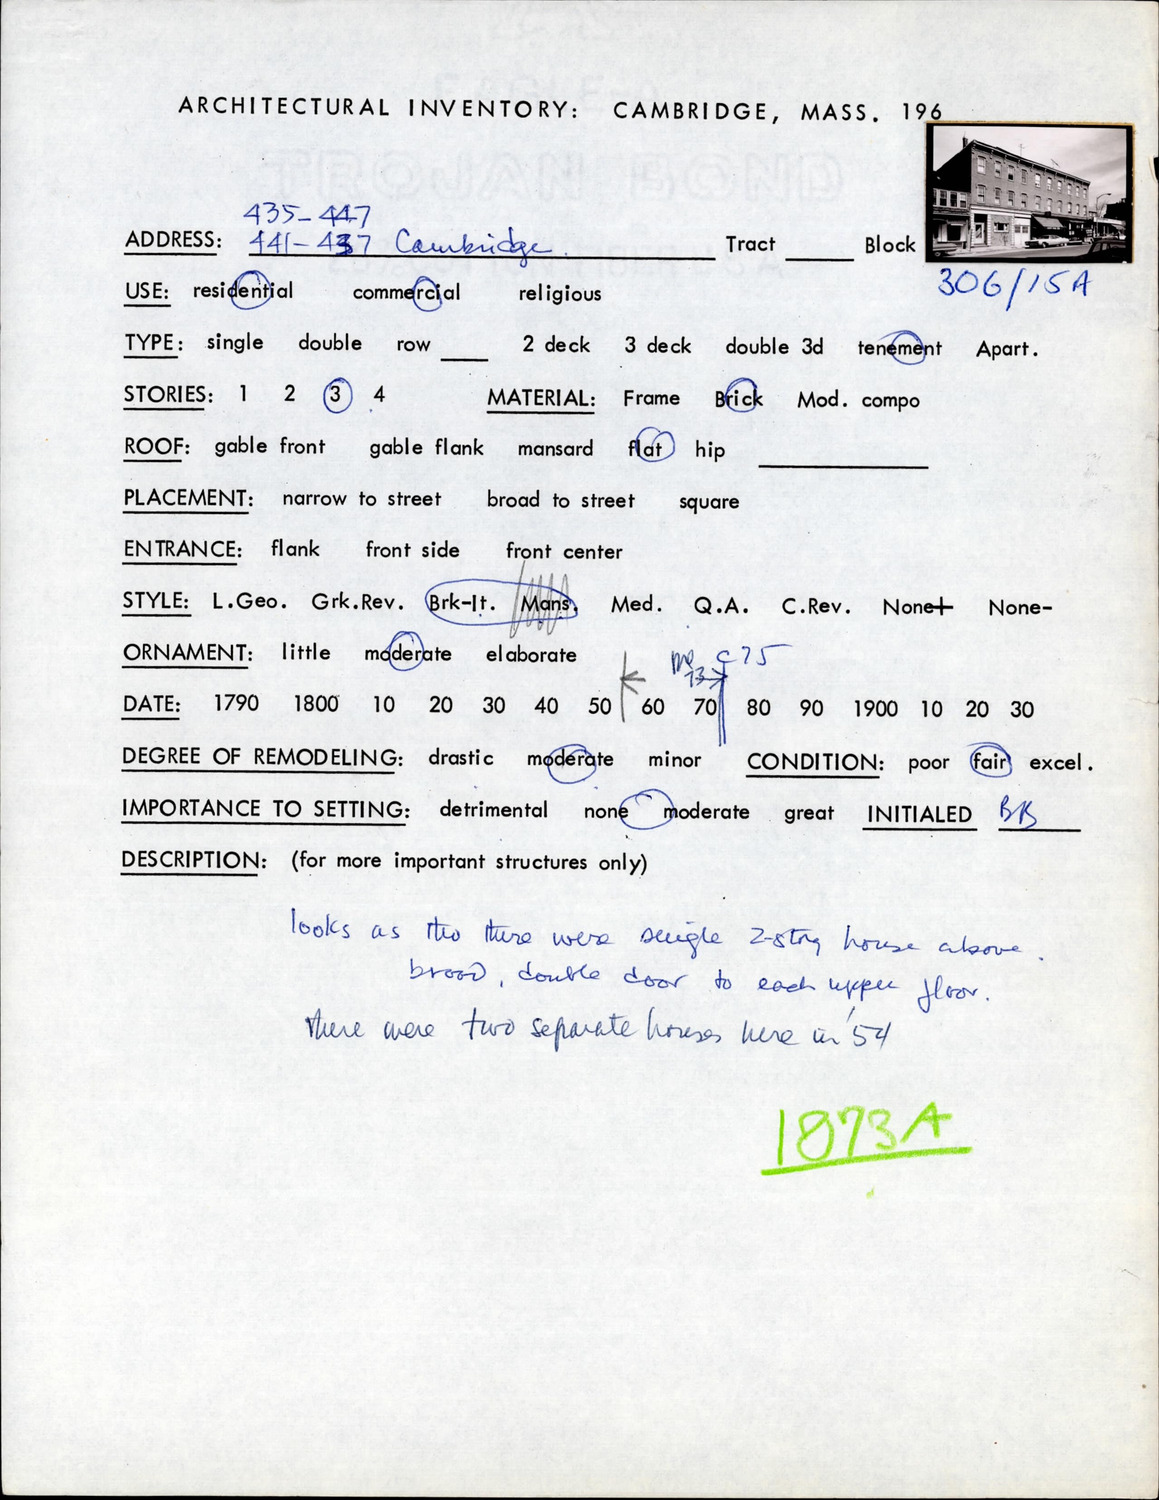 ARCHITECTURAL INVENTORY: CAMBRIDGE, MASS. 196
435-447
ADDRESS: 441-437 Cambridge Tract ____ Block
306/15A
USE: residential commercial religious
TYPE: single double row ___ 2 deck 3 deck double 3d tenement Apart.
STORIES: 1 2 3 4 MATERIAL: Frame Brick Mod. compo
ROOF: gable front gable flank mansard flat hip ________
PLACEMENT: narrow to street broad to street square
ENTRANCE: flank front side front center
STYLE: L.Geo. Grk.Rev. Brk-It. Mans. Med. Q.A. C.Rev. None+ None-
ORNAMENT: little moderate elaborate
c75
73
DATE: 1790 1800 10 20 30 40 50 60 70 80 90 1900 10 20 30
DEGREE OF REMODELING: drastic moderate minor CONDITION: poor fair excel.
IMPORTANCE TO SETTING: detrimental none moderate great INITIALED BB
DESCRIPTION: (for more important structures only)
looks as tho there were single 2-story house above.
broad, double door to each upper floor.
there were two separate houses here in '54
1873A